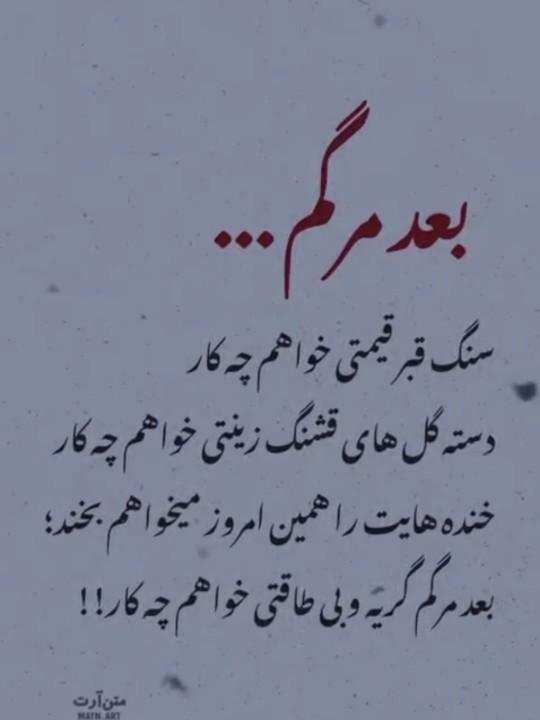 بعد مرگم...
سنگ قبر قیمتی خواهم چه کار
دسته گل های قشنگ زینتی خواهم چه کار
خنده هایت را همین امروز میخواهم بخند؛
بعد مرگم گریه و بی طاقتی خواهم چه کار!!
متن‌آرت
MATN ART